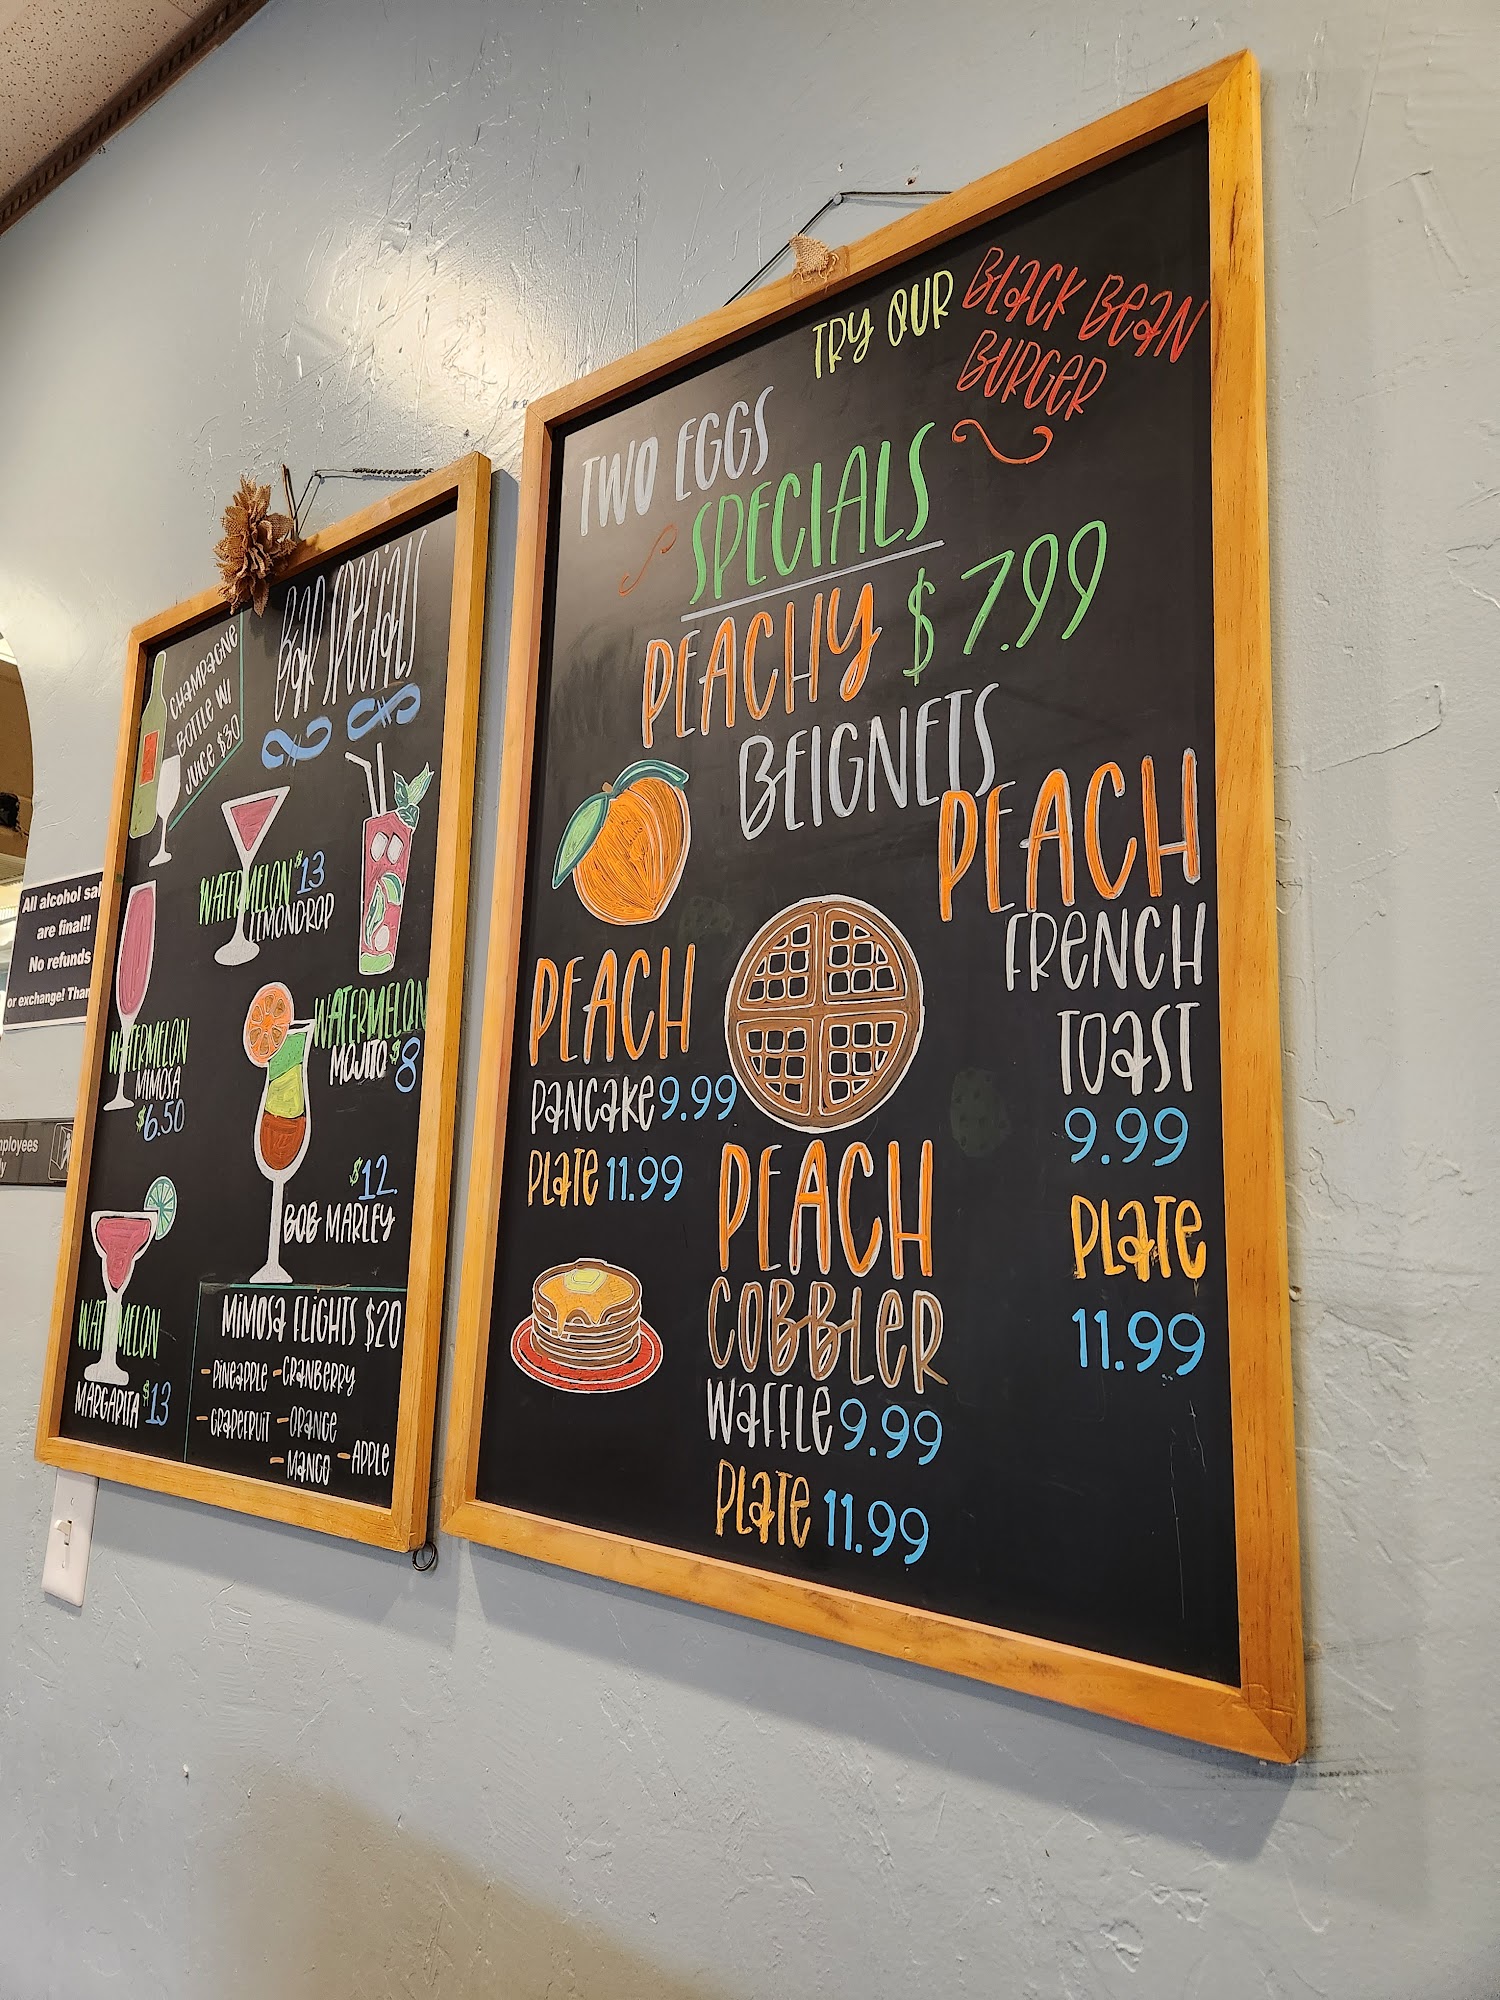 BAR SPECIALS
CHAMPAGNE
BOTTLE W/
JUICE $30
WATERMELON $13
LEMONDROP
WATERMELON
MOJITO $8
WATERMELON
MIMOSA
$6.50
$12.
BOB MARLEY
WATERMELON
MARGARITA $13
MIMOSA FLIGHTS $20
- PINEAPPLE - CRANBERRY
- GRAPEFRUIT - ORANGE
- MANGO - APPLE
All alcohol sal
are final!!
No refunds
or exchange! Than
mployees
ly
TRY OUR BLACK BEAN
BURGER
TWO EGGS
SPECIALS
PEACHY $7.99
BEIGNETS
PEACH
PANCAKE 9.99
PLATE 11.99
PEACH
COBBLER
WAFFLE 9.99
PLATE 11.99
PEACH
FRENCH
TOAST
9.99
PLATE
11.99